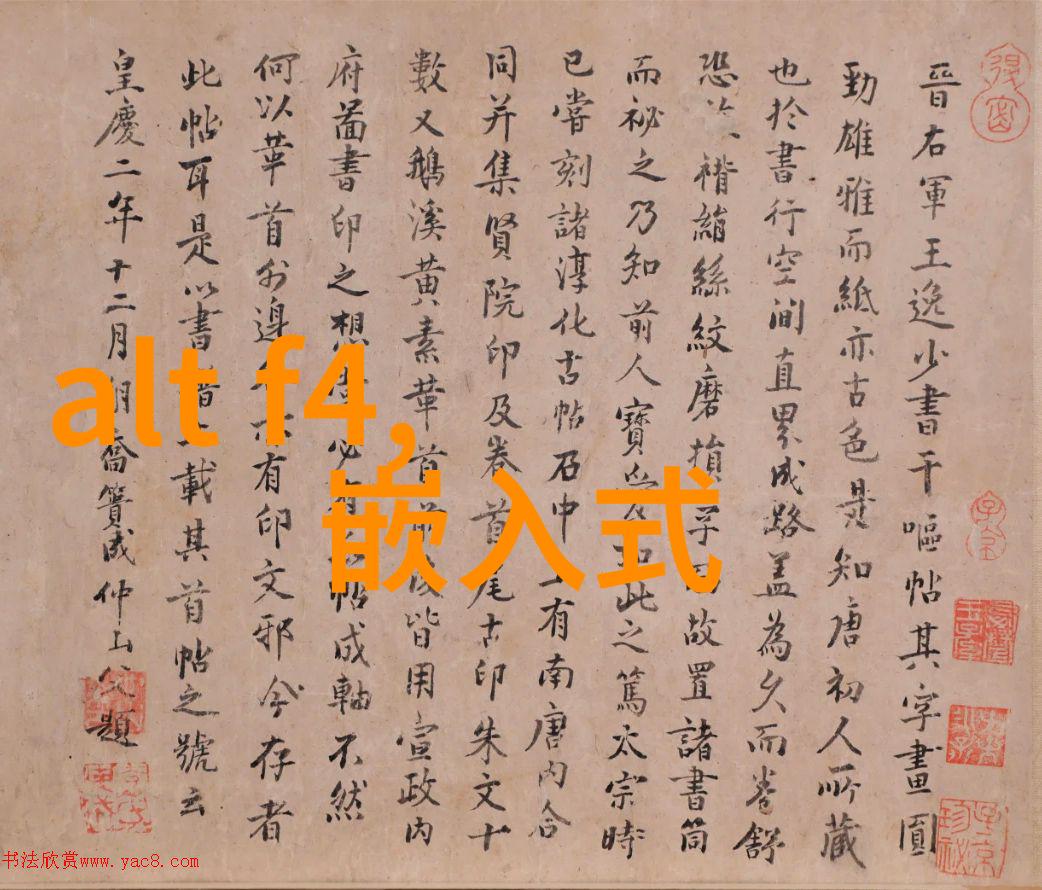 晉右軍王逸少書干嘔帖其字畫圓
勁雄雅而紙亦古色是知唐初人所藏
也於書行空間直界成路蓋為久而卷舒
恐褙絲紋磨損字故置諸書筒
而祕之乃知前人寶此之篤太宗時
已嘗刻諸淳化古帖石中有南唐內合
同并集賢院印及卷首尾古印朱文十
數又鵝溪黃素華首皆用宣政內
府啚書印之想必有帖成軸不然
何以華首外邊有印文邪今存者
此帖耳是以書載其首帖之號云
皇慶二年十二月朔喬簣成仲山父題
alt f4,
嵌入式
书法欣赏www.yac8.com